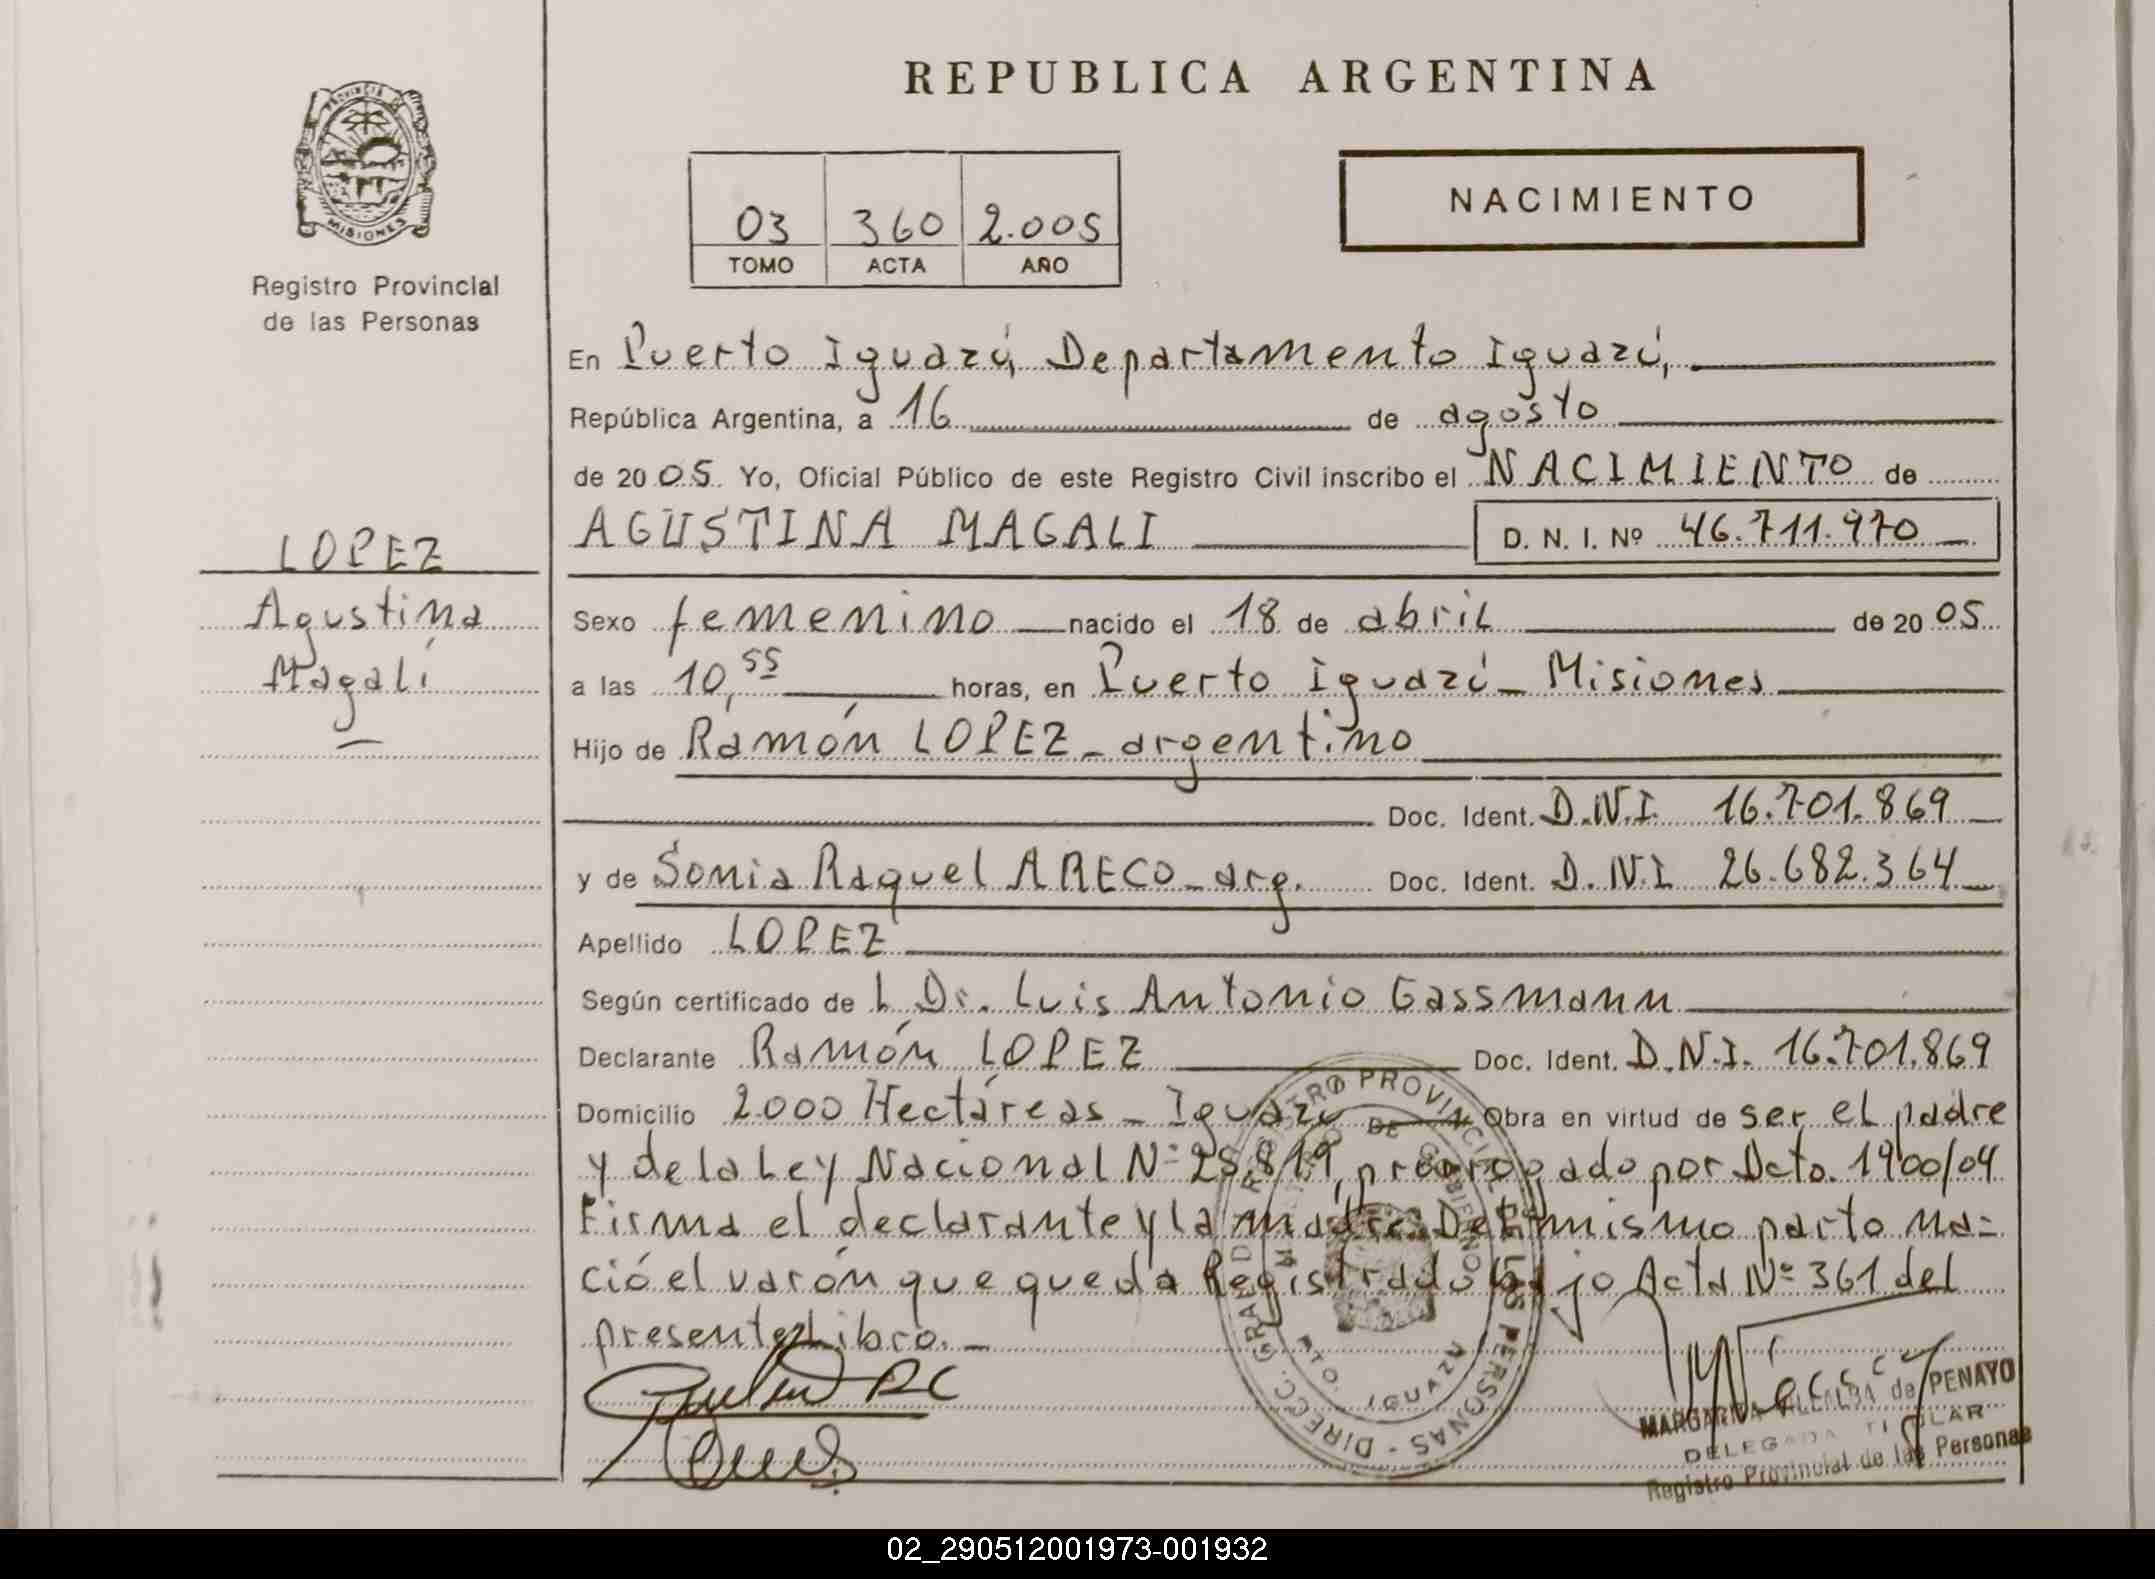 PROVINCIA DE
MISIONES
Registro Provincial
de las Personas
LOPEZ
Agustina
Magalí
REPUBLICA ARGENTINA
03 360 2.005
TOMO ACTA AÑO
NACIMIENTO
En Puerto Iguazú, Departamento Iguazú,
República Argentina, a 16 de agosto
de 2005 Yo, Oficial Público de este Registro Civil inscribo el NACIMIENTO de
AGUSTINA MAGALI D. N. I. Nº 46.711.970
Sexo femenino nacido el 18 de abril de 2005
a las 10,55 horas, en Puerto Iguazú - Misiones
Hijo de Ramón LOPEZ - argentino
Doc. Ident. D.N.I. 16.701.869
y de Sonia Raquel ARECO - arg. Doc. Ident. D.N.I 26.682.364
Apellido LOPEZ
Según certificado de l Dr. Luis Antonio Gassmann
Declarante Ramón LOPEZ Doc. Ident. D.N.I. 16.701.869
Domicilio 2.000 Hectáreas - Iguazú Obra en virtud de ser el padre
y de la Ley Nacional Nº 25.819, prorrogado por Dcto. 1900/04
Firma el declarante y la madre. Del mismo parto na=
ció el varón que queda Registrado bajo Acta Nº 361 del
presente Libro. -
REGISTRO PROVINCIAL DE LAS PERSONAS - DIREC. GRAL.
DE GOBIERNO
PTO. IGUAZU
MARGARITA VILLALBA de PENAYO
DELEGADA TITULAR
Registro Provincial de las Personas
02_290512001973-001932